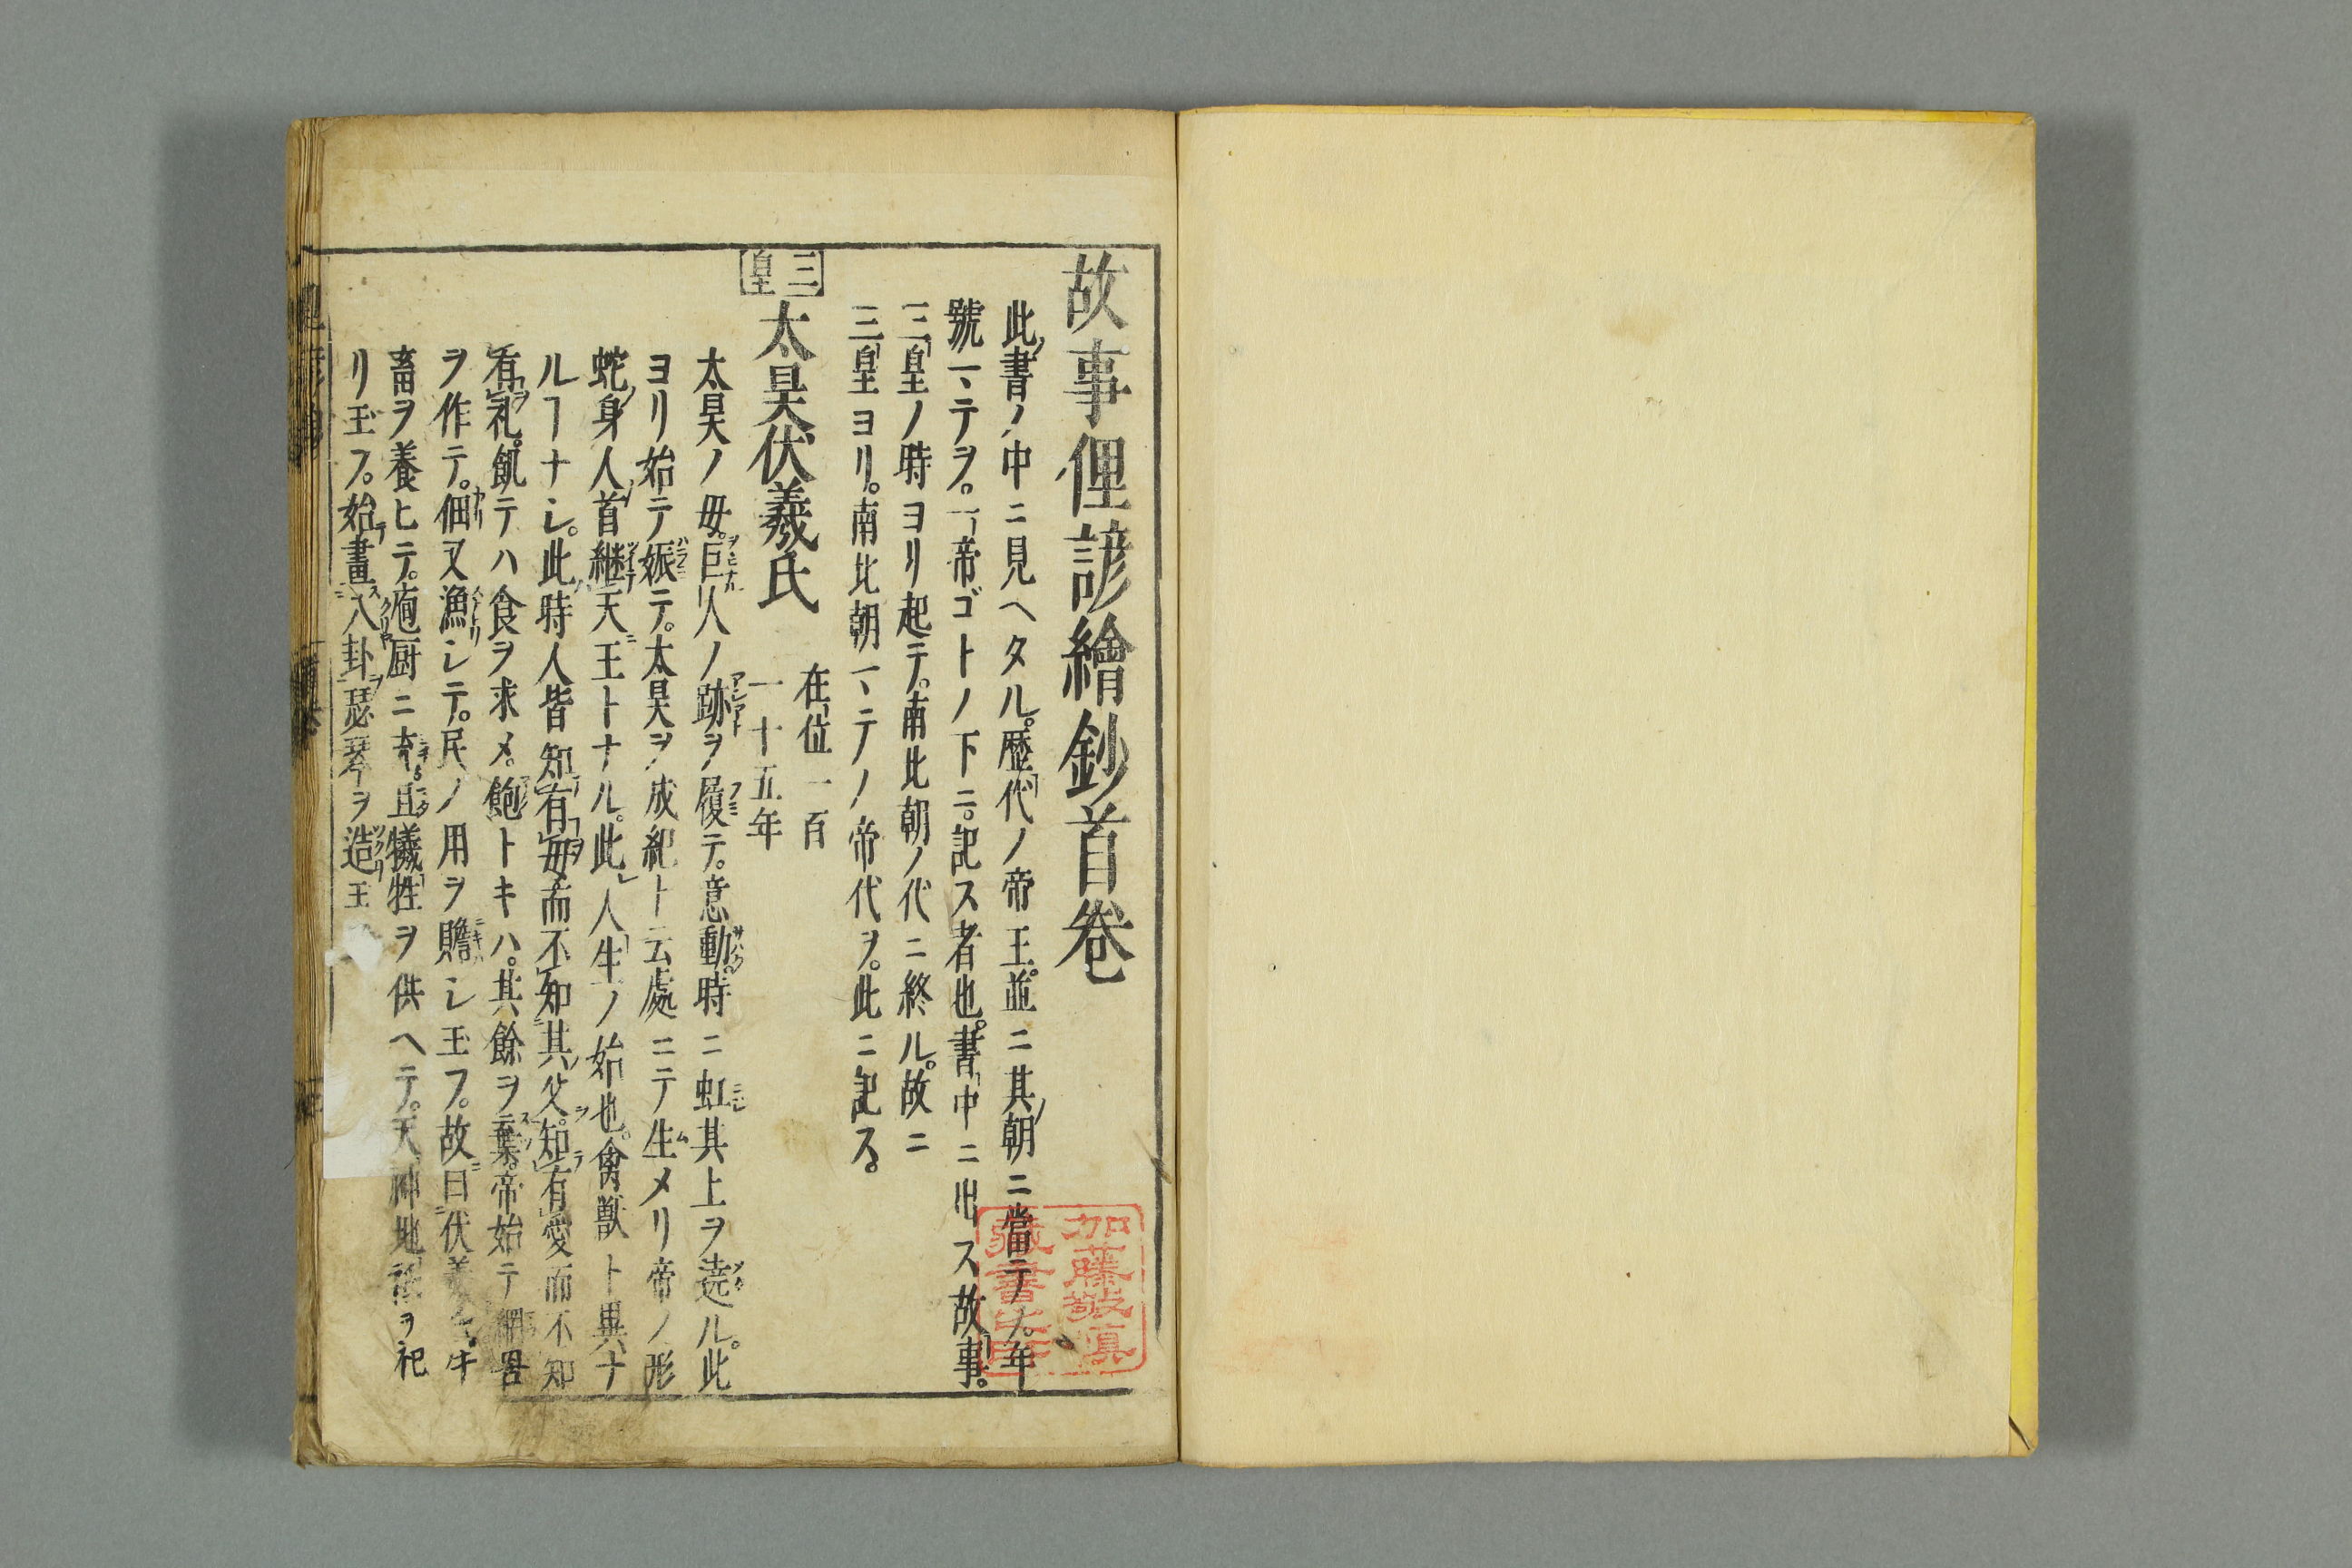 故事俚諺繪鈔首卷
此書ノ中ニ見ヘタル。歴代ノ帝王。並ニ其朝ニ當テノ。年
號一〻テヲ。一帝ゴトノ下ニ。記ス者也。書中ニ出ス故事。
三皇ノ時ヨリ起テ。南北朝ノ代ニ終ル。故ニ
三皇ヨリ。南北朝一〻テノ帝代ヲ。此ニ記ス。
三皇
太昊伏羲氏
在位一百
一十五年
太昊ノ毋。巨人ノ跡ヲ履テ。意動。時ニ虹其上ヲ遶ル。此
ヨリ始テ娠テ。太昊ヲ成紀ト云處ニテ生メリ帝ノ形
蛇身人首継天王トナル。此人生ノ始也。禽獣ト異ナ
ルヿナシ。此時人皆知有毋而不知其父。知有愛而不知
有礼。飢テハ食ヲ求メ。飽トキハ。其餘ヲ棄。帝始テ網罟
ヲ作テ。佃又漁シテ。民ノ用ヲ贍シ玉フ。故曰伏羲氏。牛
畜ヲ養ヒテ。庖厨ニ充。且犧牲ヲ供ヘテ。天神地祇ヲ祀
リ玉フ。始畫八卦瑟琴ヲ造王
加藤敬眞
藏書之印